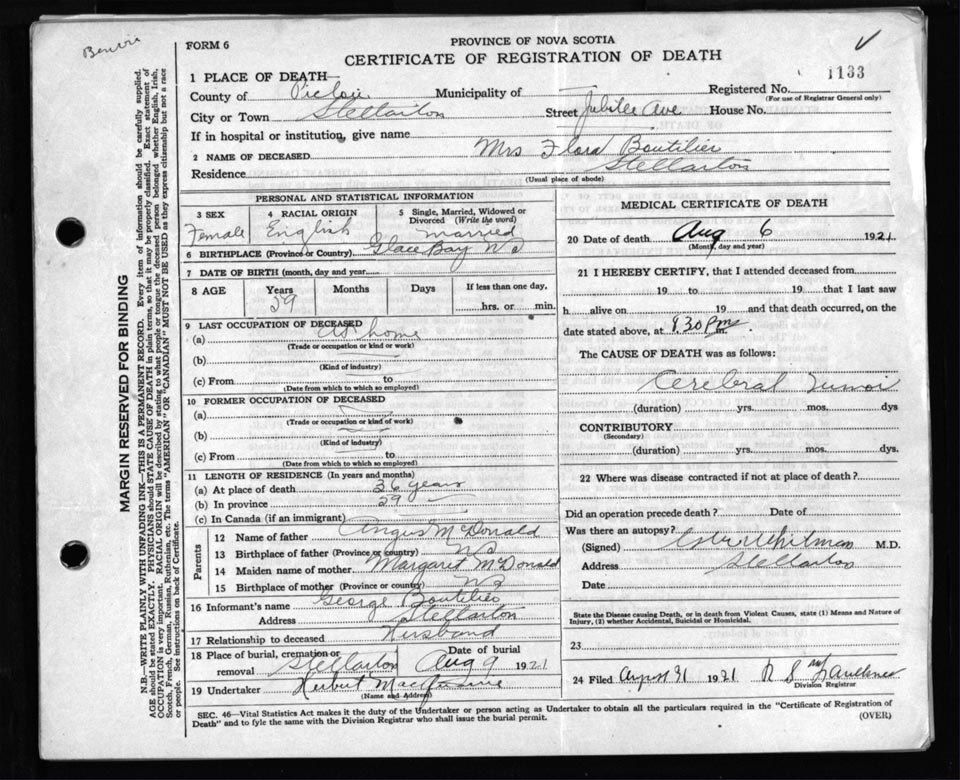 FORM 6
PROVINCE OF NOVA SCOTIA
CERTIFICATE OF REGISTRATION OF DEATH
1133
1 PLACE OF DEATH—
County of Pictou Municipality of Registered No.
(For use of Registrar General only)
City or Town Stellarton Street Jubilee Ave House No.
If in hospital or institution, give name
2 NAME OF DECEASED Mrs Flora Boutilier
Residence Stellarton
(Usual place of abode)
PERSONAL AND STATISTICAL INFORMATION
3 SEX 4 RACIAL ORIGIN 5 Single, Married, Widowed or Divorced (Write the word)
Female English married
6 BIRTHPLACE (Province or Country) Glace Bay NS
7 DATE OF BIRTH (month, day and year)
8 AGE Years Months Days If less than one day,
hrs. or min.
9 LAST OCCUPATION OF DECEASED
(a) at home
(Trade or occupation or kind or work)
(b)
(Kind of industry)
(c) From to
(Date from which to which so employed)
10 FORMER OCCUPATION OF DECEASED
(a)
(Trade or occupation or kind of work)
(b)
(Kind of industry)
(c) From to
(Date from which to which so employed)
11 LENGTH OF RESIDENCE (In years and months)
(a) At place of death 36 years
(b) In province
(c) In Canada (if an immigrant)
Parents
12 Name of father Angus McDonald
13 Birthplace of father (Province or country) NS
14 Maiden name of mother Margaret McDonald
15 Birthplace of mother (Province or country) NS
16 Informant's name George Boutilier
Address Stellarton
17 Relationship to deceased Husband
18 Place of burial, cremation or removal Stellarton Date of burial Aug 9 1921
19 Undertaker Herbert
(Name and Address)
MEDICAL CERTIFICATE OF DEATH
20 Date of death Aug 6 1921
(Month, day and year)
21 I HEREBY CERTIFY, that I attended deceased from
19 to 19 that I last saw
h alive on 19 and that death occurred, on the
date stated above, at 8.30 Pm m.
The CAUSE OF DEATH was as follows:
Cerebral Tumor
(duration) yrs. mos. dys
CONTRIBUTORY
(Secondary)
(duration) yrs. mos. dys.
22 Where was disease contracted if not at place of death?
Did an operation precede death? Date of
Was there an autopsy?
(Signed) Whitman M.D.
Address Stellarton
Date
State the Disease causing Death, or in death from Violent Causes, state (1) Means and Nature of
Injury, (2) whether Accidental, Suicidal or Homicidal.
23
24 Filed August 31 1921 R S
Division Registrar
SEC. 46—Vital Statistics Act makes it the duty of the Undertaker or person acting as Undertaker to obtain all the particulars required in the "Certificate of Registration of
Death" and to fyle the same with the Division Registrar who shall issue the burial permit.
(OVER)
MARGIN RESERVED FOR BINDING
N.B.—WRITE PLAINLY WITH UNFADING INK—THIS IS A PERMANENT RECORD. Every item of information should be carefully supplied.
AGE should be stated EXACTLY. PHYSICIANS should STATE CAUSE OF DEATH in plain terms, so that it may be properly classified. Exact statement of
OCCUPATION is very important. RACIAL ORIGIN will be described by stating to what people or tongue the deceased person belonged whether English, Irish,
Scotch, French, German, Russian, Ruthenian, etc. The terms "AMERICAN" OR "CANADIAN" MUST NOT BE USED as they express citizenship but not a race
or people. See instructions on back of Certificate.